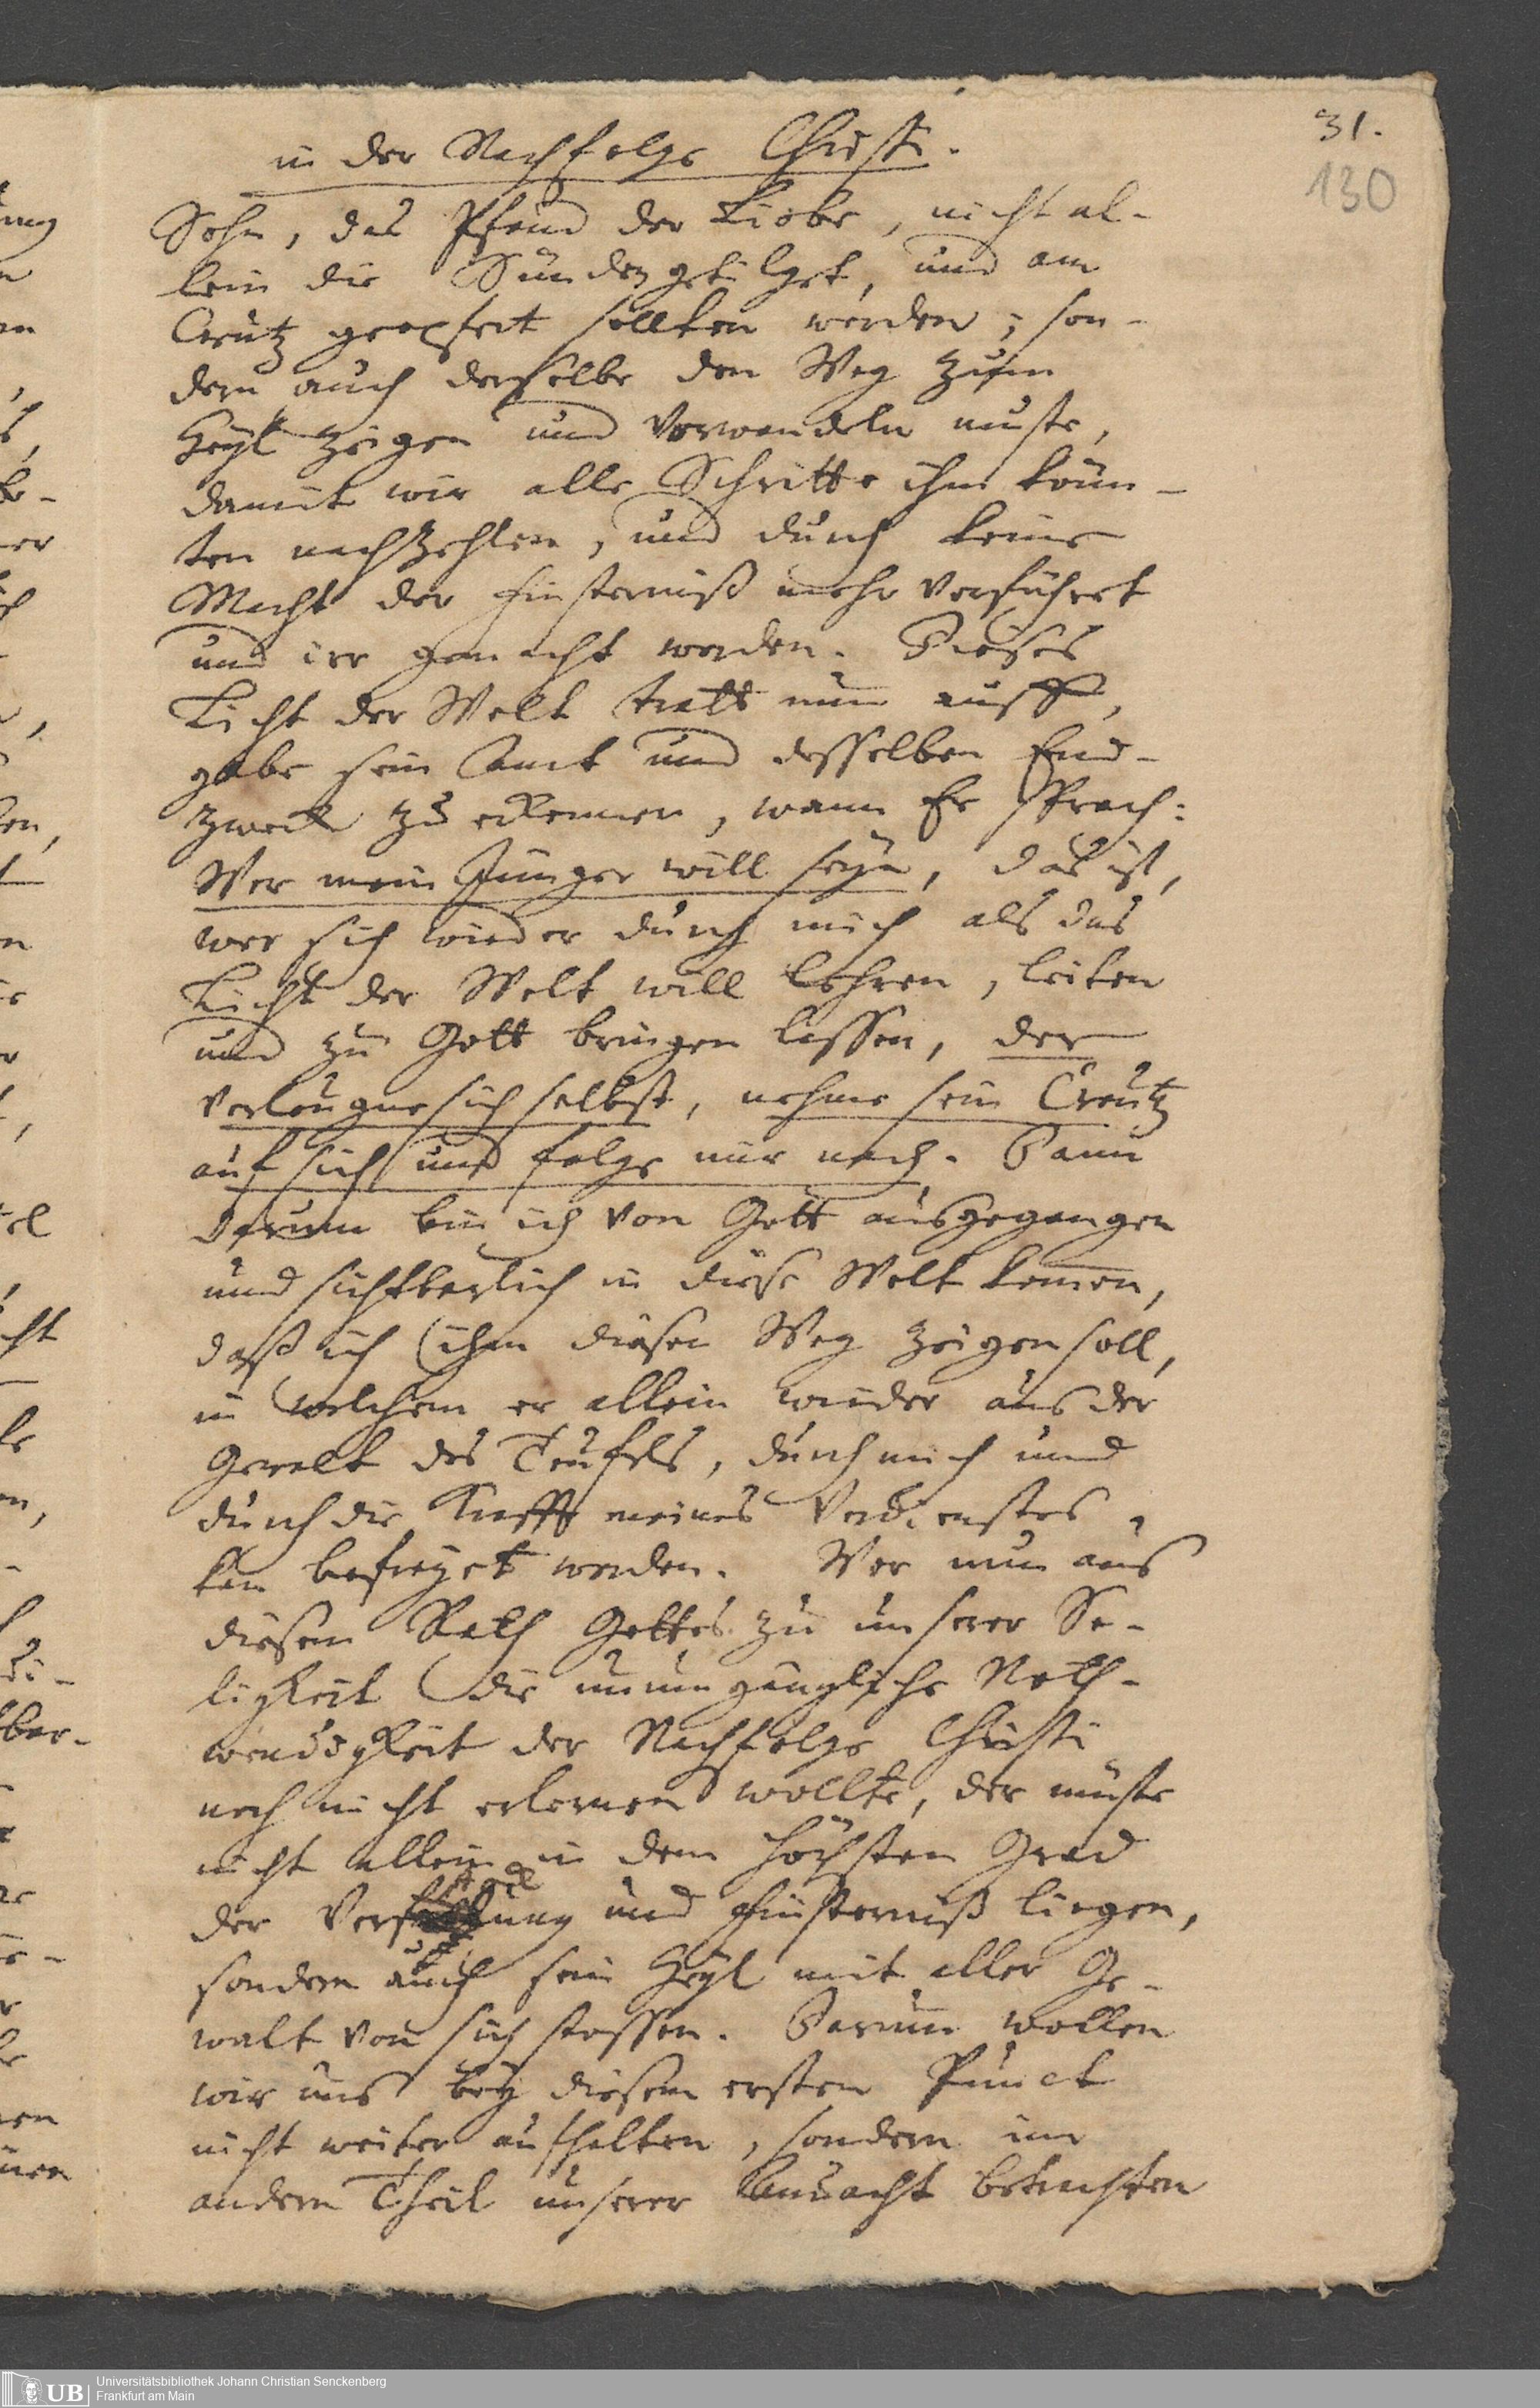 31.
130
in der Nachfolge Christi.
Sohn, das Pfand der Liebe, nicht al-
lein die Sünden getilget, und am
Creutz geopfert sollten werden; son-
dern auch derselbe den Weg zum
Heyl zeigen und vorwandeln muste,
damit wir alle Schritte ihm kön̄-
ten nachzehlen, und durch keine
Macht der Finsterniß mehr verführet
und irr gemacht werden. Dieses
Licht der Welt tratt nun auff,
gabe sein Amt und desselben End-
zweck zu erkennen, wann Er sprach:
Wer mein Jünger will seyn, das ist,
wer sich wieder durch mich als das
Licht der Welt will lehren, leiten
und zu Gott bringen lassen, der
verleugne sich selbst, nehme sein Creutz
auf sich und folge mir nach. Dann
darum bin ich von Gott ausgegangen
und sichtbarlich in diese Welt kom̄en,
daß ich ihm diesen Weg zeigen soll,
in welchem er allein wieder aus der
Gewalt des Teufels, durch mich und
durch die Krafft meines Verdienstes,
kan befreyet werden. Wer nun aus
diesem Rath Gottes zu unserer Se-
ligkeit die unumgängliche Noth-
wendigkeit der Nachfolge Christi
noch nicht erlernen wollte, der müste
nicht allein in dem höchsten Grad
der und Finsterniß liegen,
sondern auch sein Heyl mit aller Ge-
walt von sich stossen. Darum̄ wollen
wir uns bey diesem ersten Punct
nicht weiter aufhalten, sondern im
andern Theil unserer Andacht betrachten
UB
Universitätsbibliothek Johann Christian Senckenberg
Frankfurt am Main